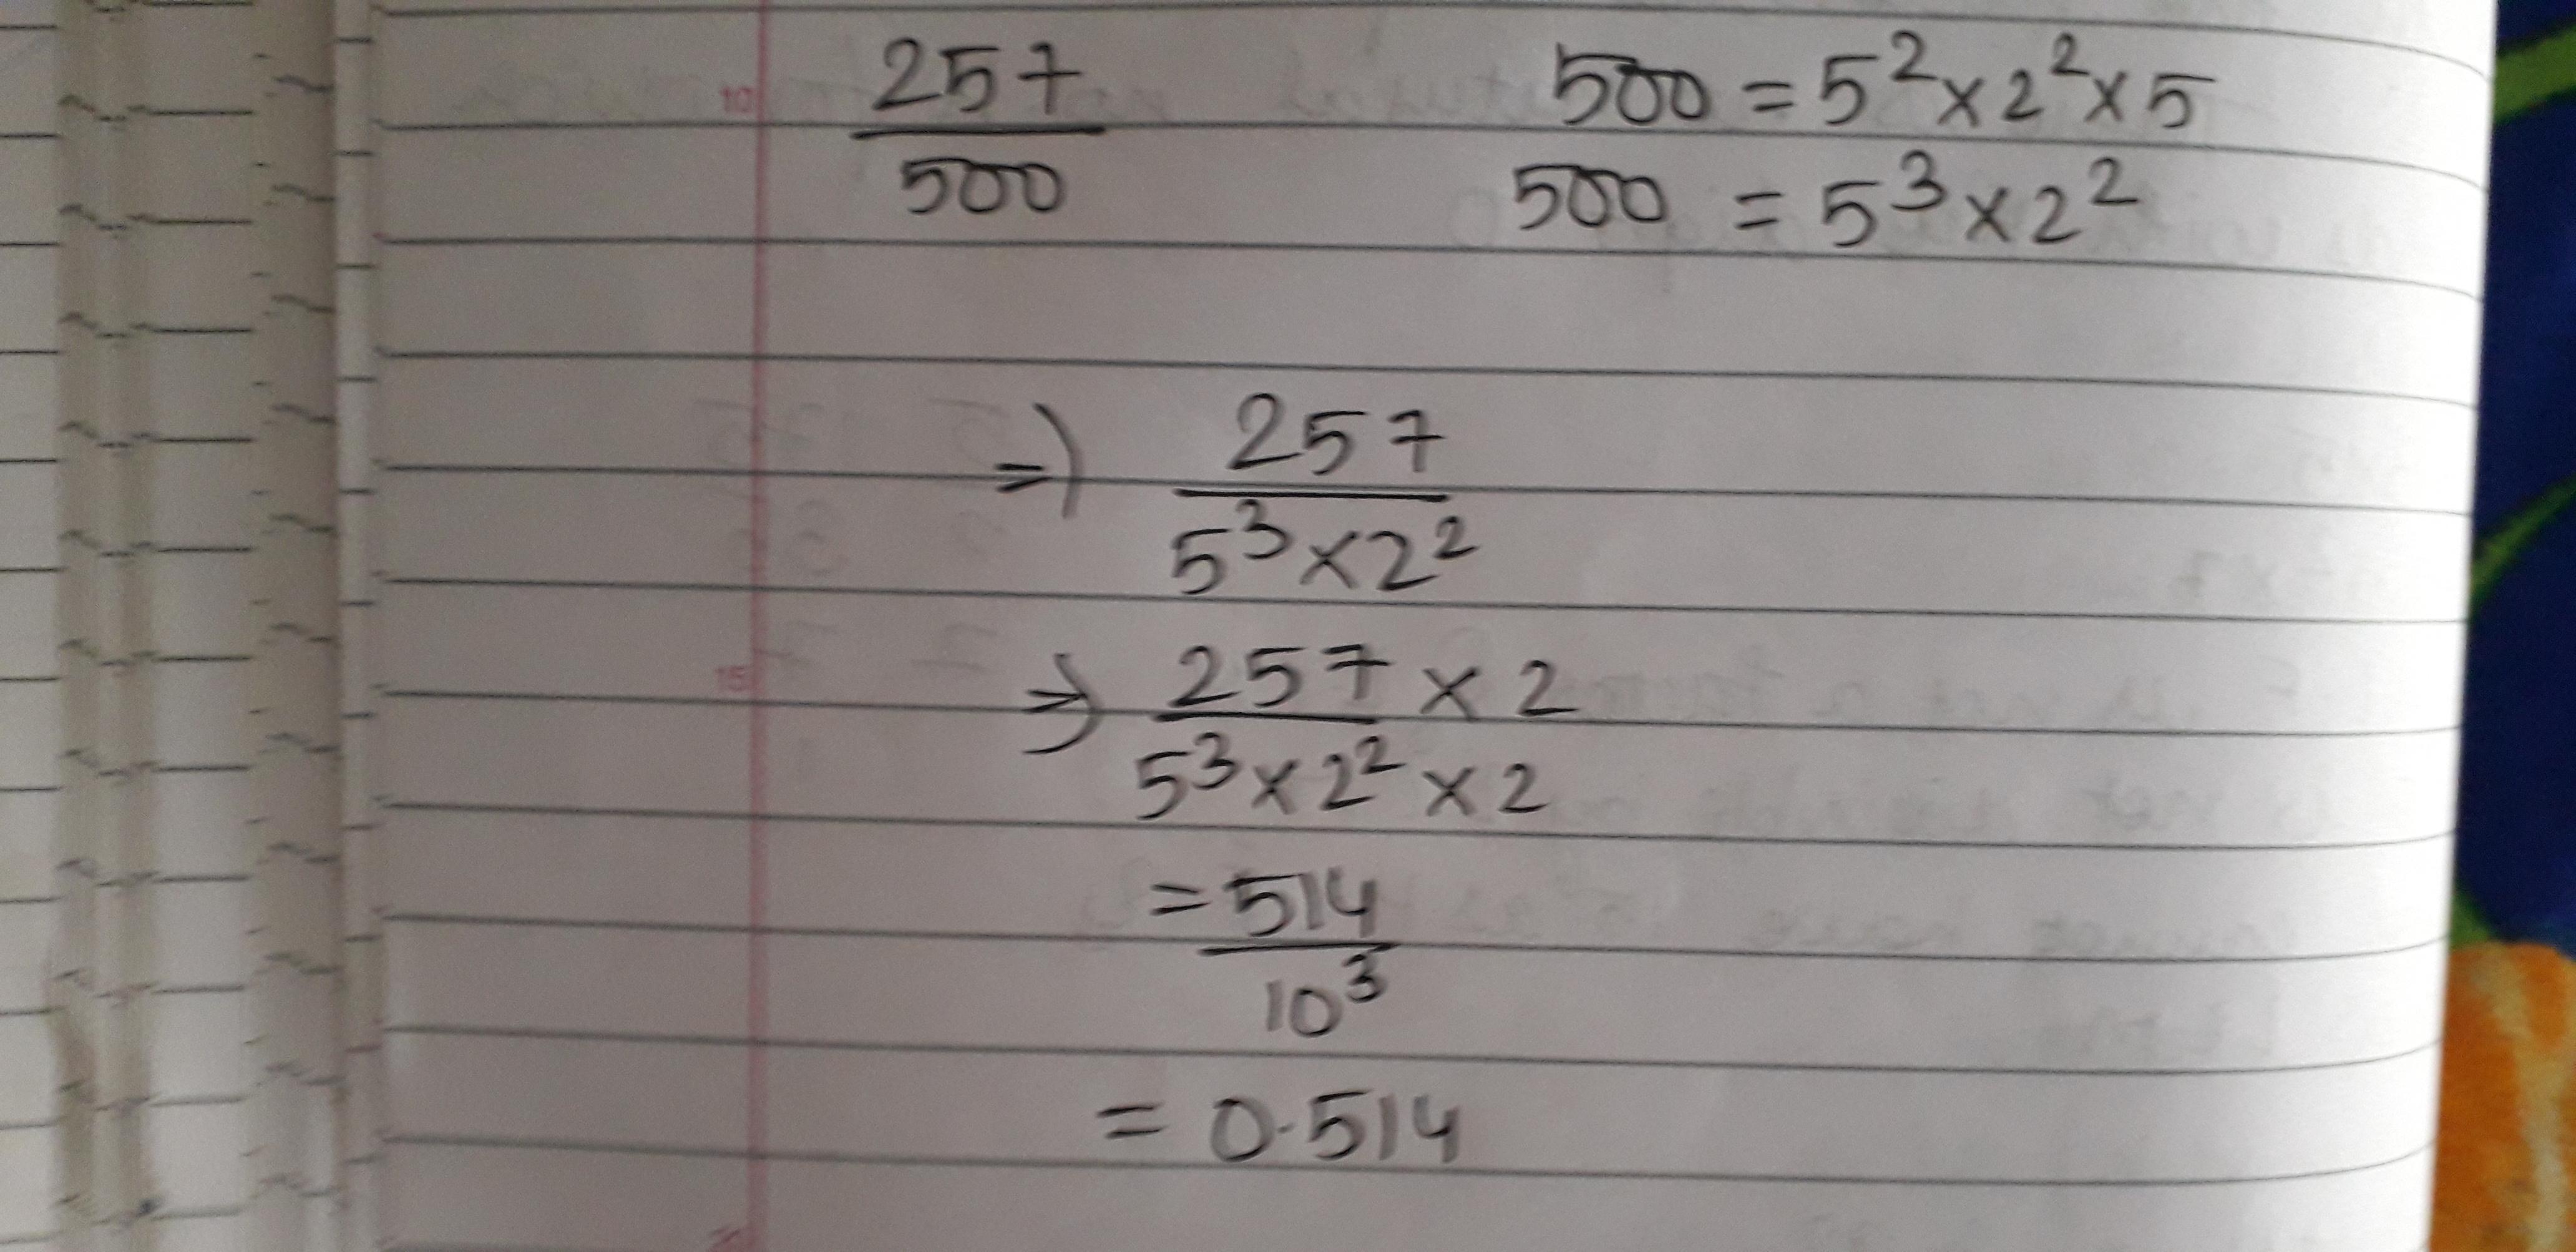 10
257/500
500 = 5² x 2² x 5
500 = 5³ x 2²
=) 257/5³ x 2²
15
=) 257 x 2/5³ x 2² x 2
= 514/10³
= 0.514